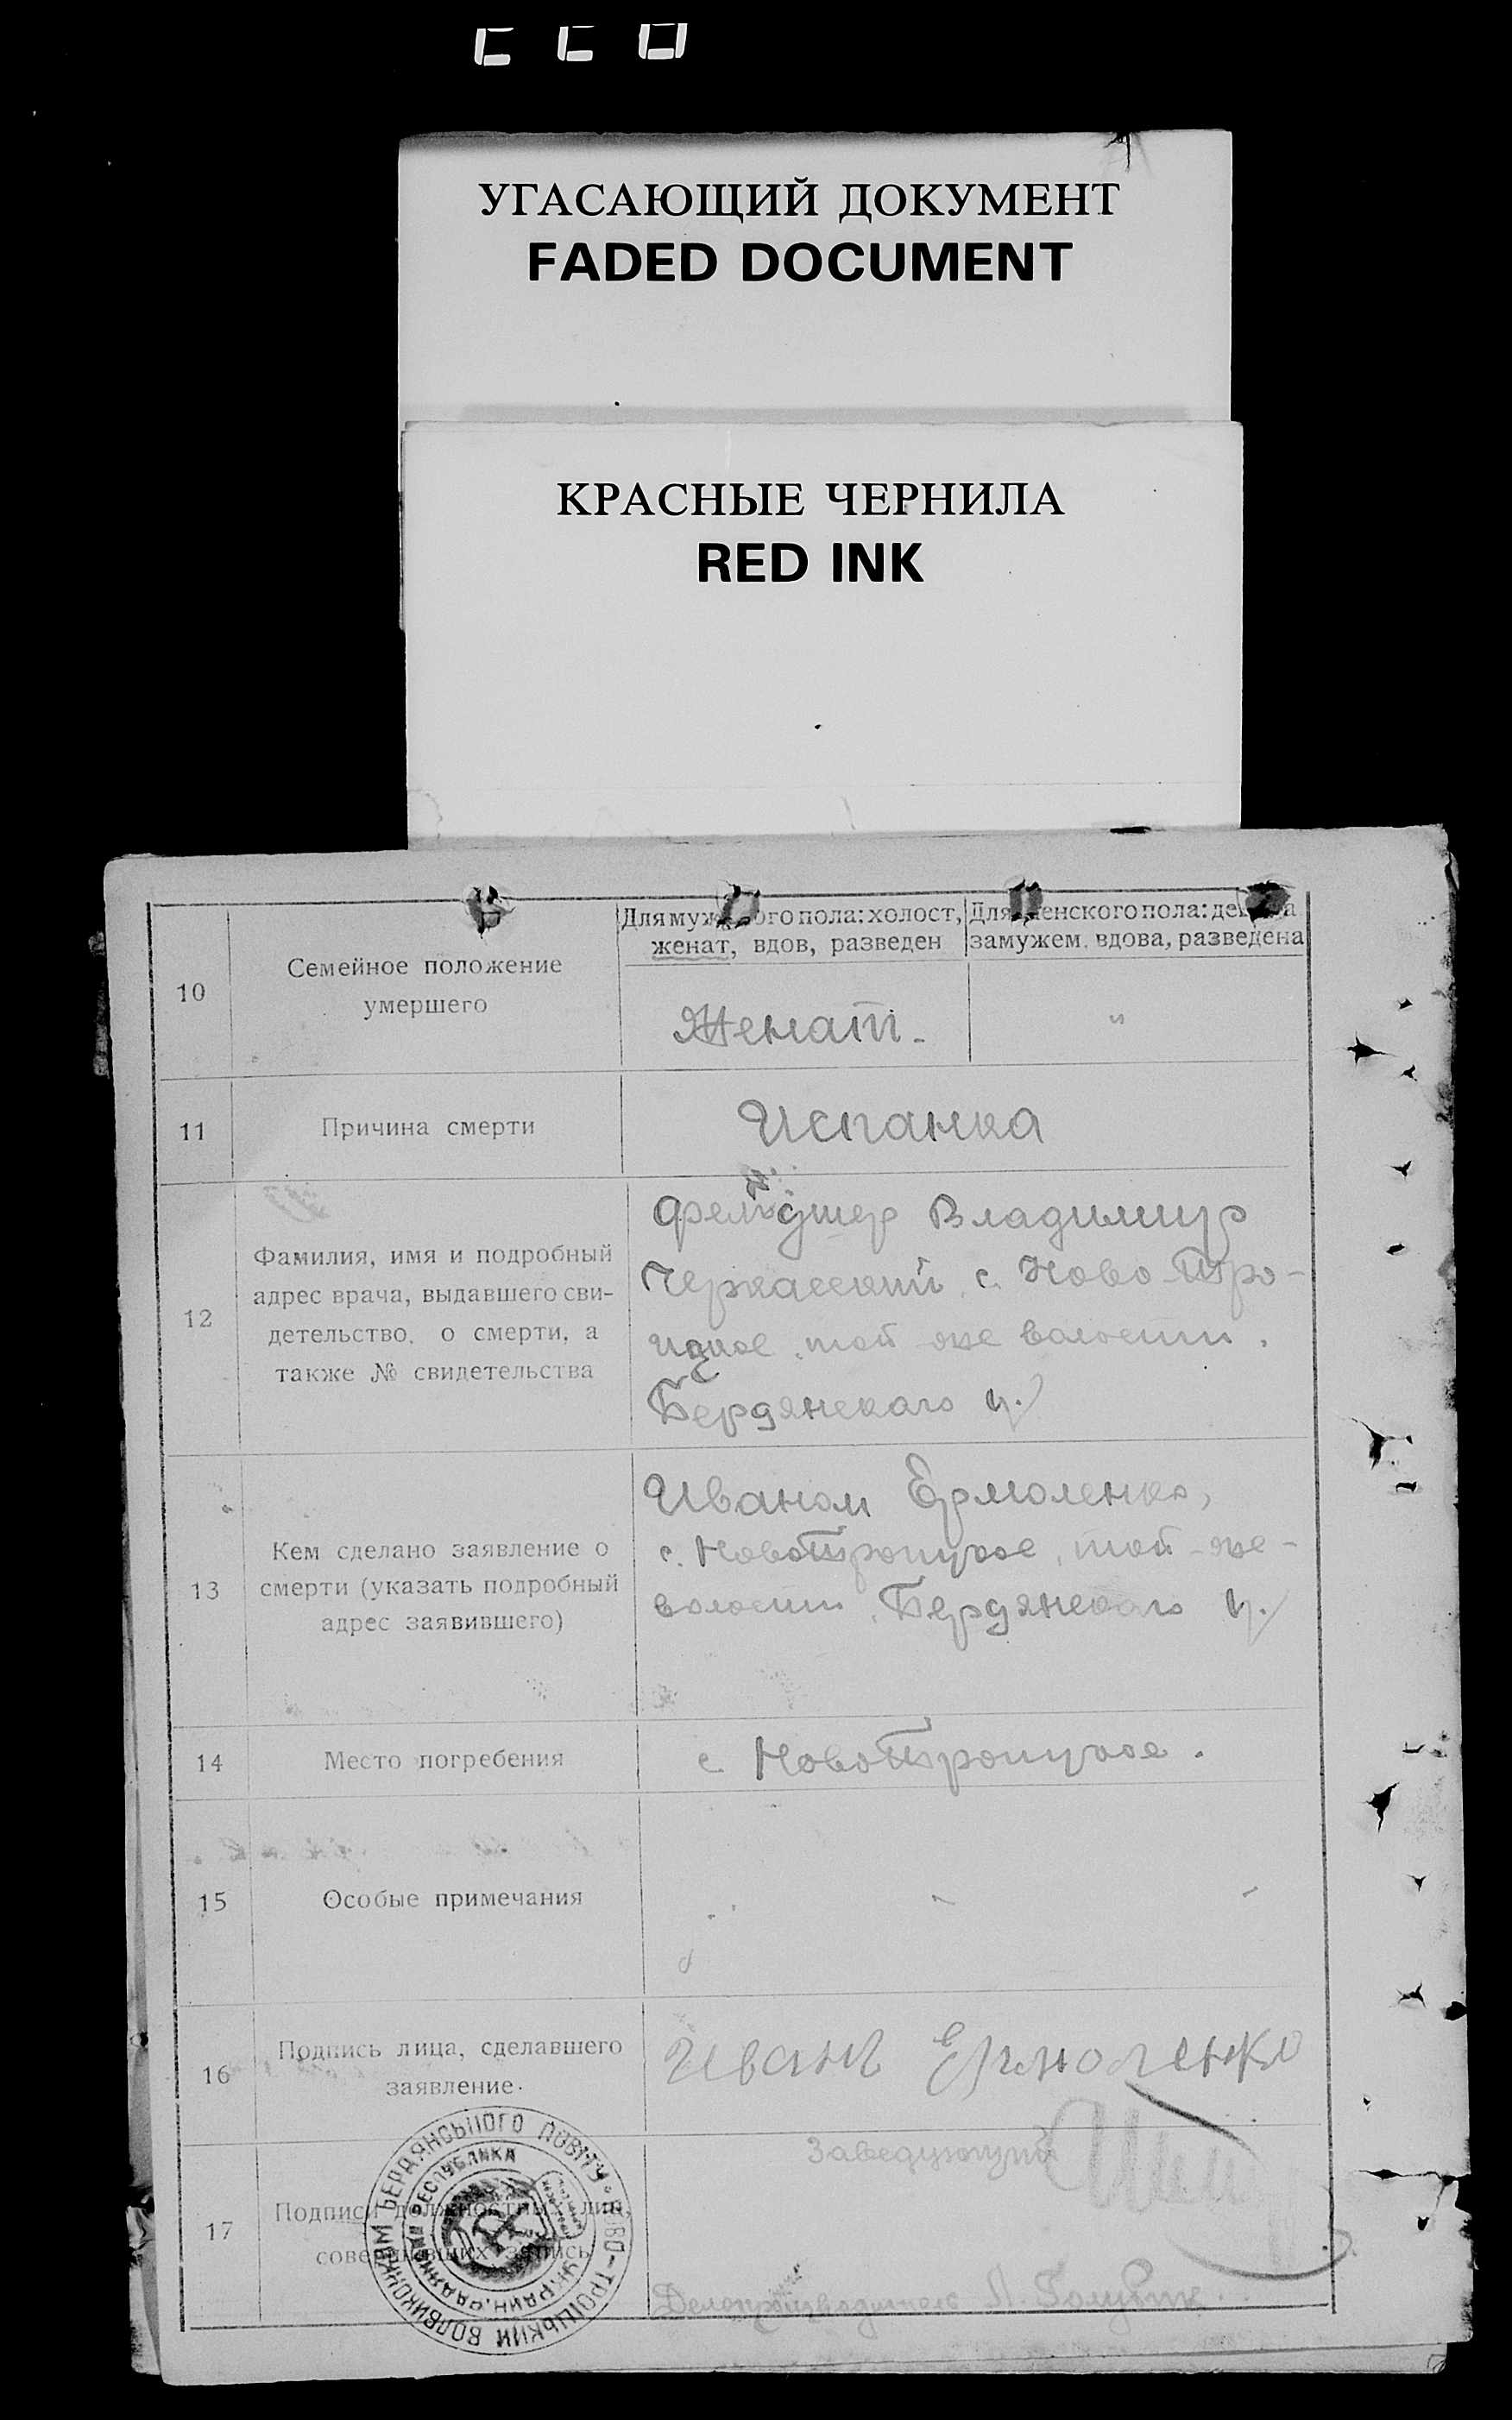 УГАСАЮЩИЙ ДОКУМЕНТ
FADED DOCUMENT
КРАСНЫЕ ЧЕРНИЛА
RED INK
10
Семейное положение
умершего
Для муж ого пола: холост,
женат, вдов, разведен
Для енского пола: де а
замужем, вдова, разведена
Женат.
"
11
Причина смерти
Испанка
12
Фамилия, имя и подробный
адрес врача, выдавшего сви-
детельство, о смерти, а
также № свидетельства
Фельдшер Владимир
Черкасский, с. Ново-Тро-
ицкое, той же волости,
Бердянскаго у.
13
Кем сделано заявление о
смерти (указать подробный
адрес заявившего)
Иваном Ермоленко,
с. НовоТроицкое, той-же-
волости, Бердянскаго у.
14
Место погребения
с. НовоТроицкое.
15
Особые примечания
16
Подпись лица, сделавшего
заявление.
Иванъ Ермоленко
17
Подписи должностных лиц,
совершивших запись
Заведующий
Делопроизводитель
БЕРДЯНСЬКОГО ПОВІТУ
ТРОЇЦЬКИЙ ВОЛВИКОНКОМ
РЕСПУБЛИКА